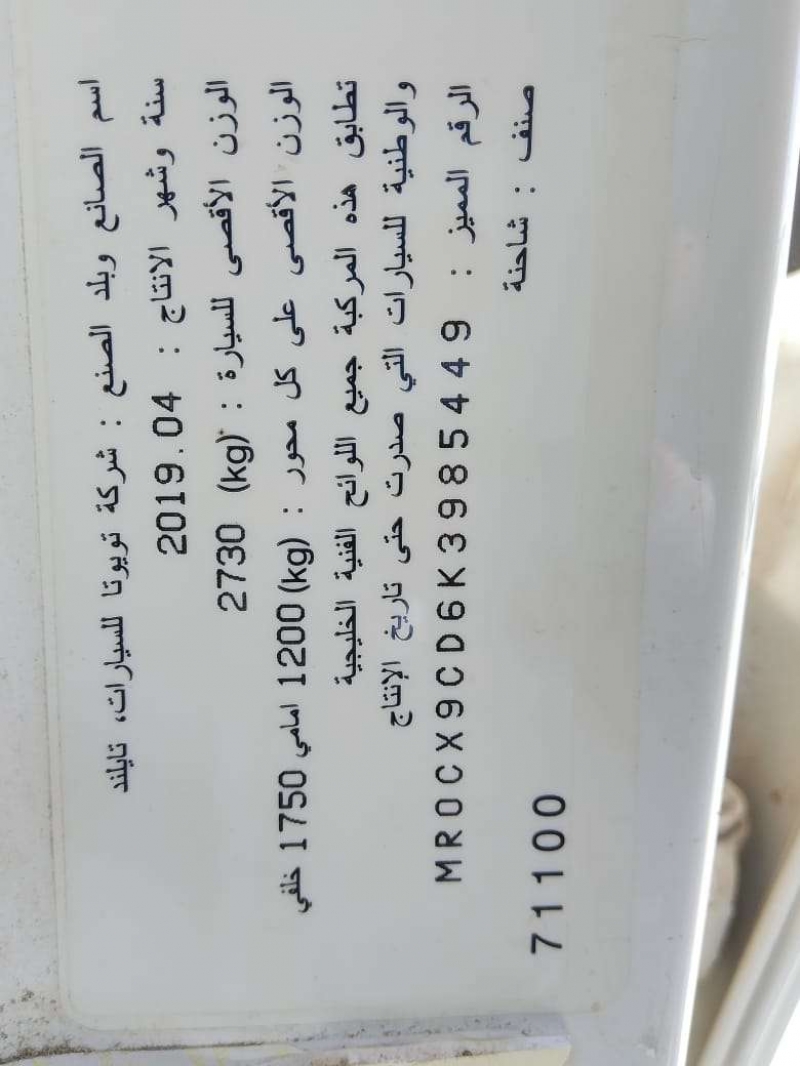 اسم الصانع وبلد الصنع : شركة تويوتا للسيارات، تايلند
سنة وشهر الانتاج : 2019.04
الوزن الأقصى للسيارة : (kg) 2730
الوزن الأقصى على كل محور : (kg) 1200 امامي 1750 خلفي
تطابق هذه المركبة جميع اللوائح الفنية الخليجية
والوطنية للسيارات التي صدرت حتى تاريخ الإنتاج
الرقم المميز : MR0CX9CD6K3985449
صنف : شاحنة
71100